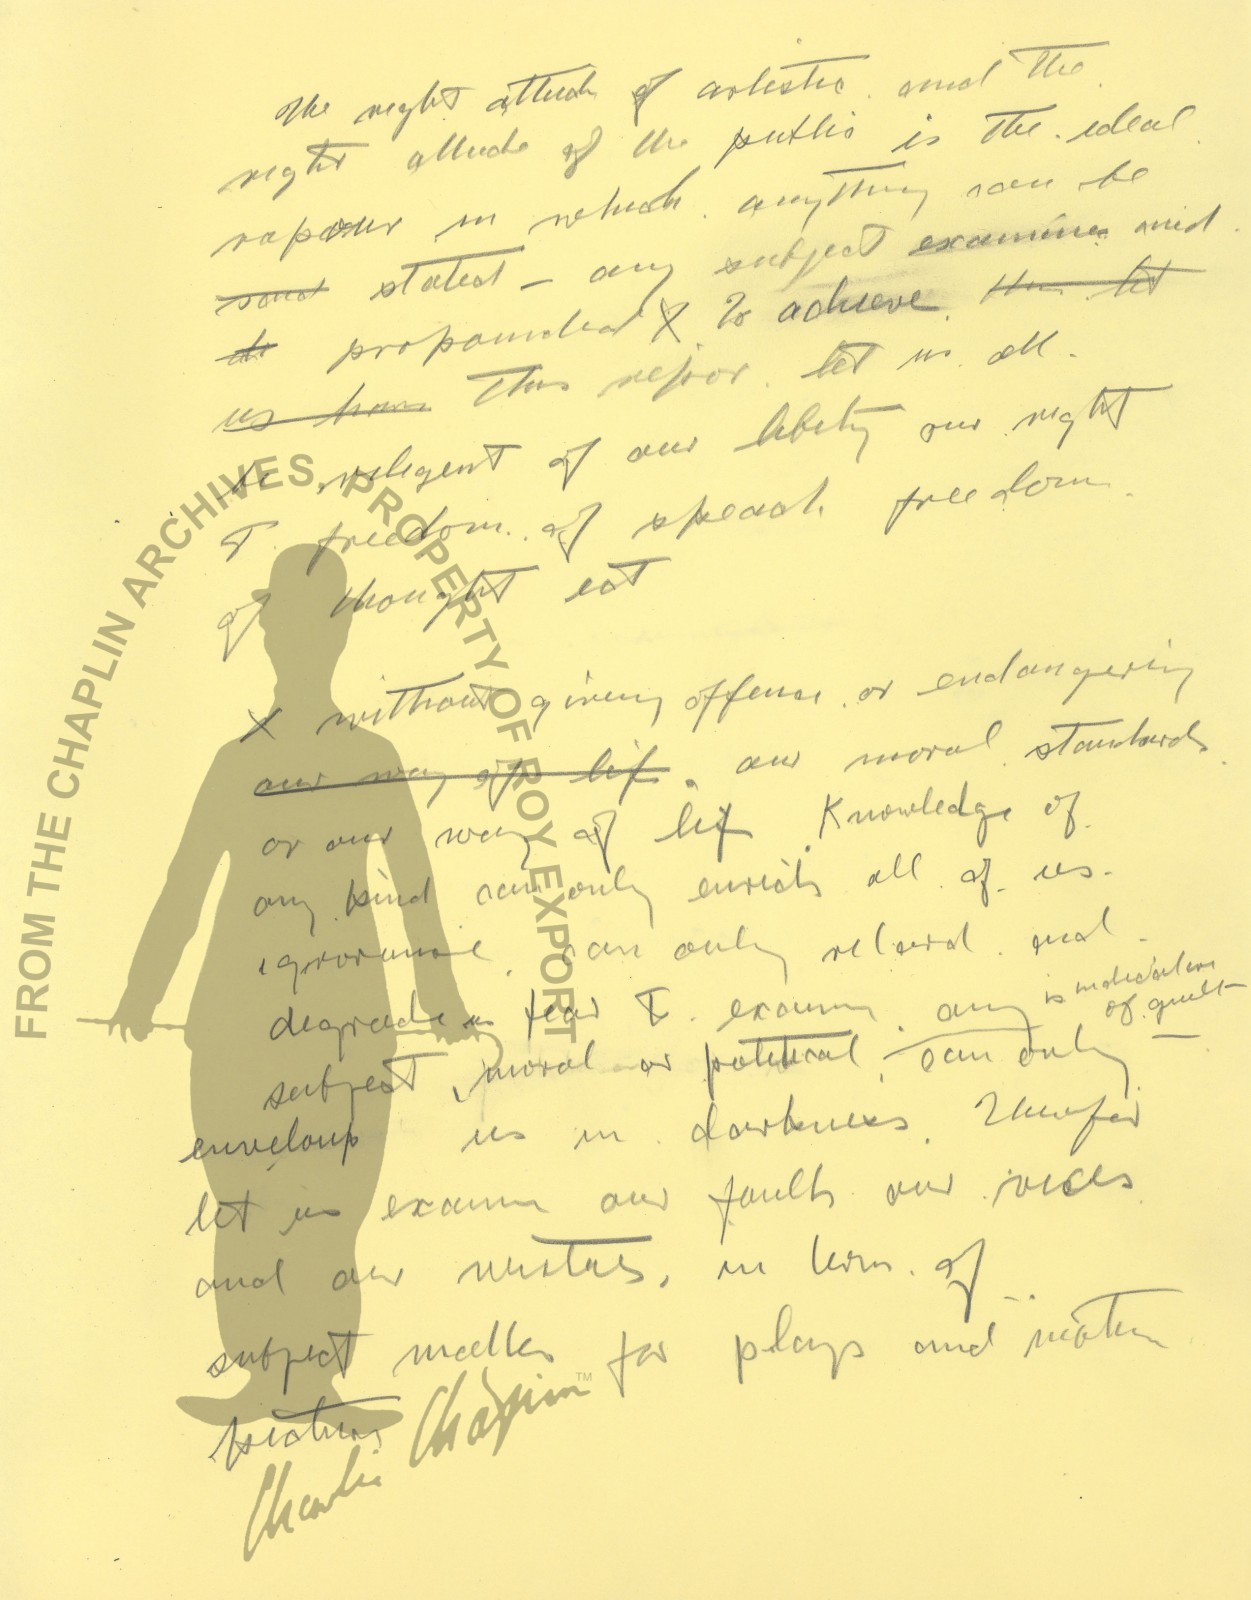 The right attude of artistic and the
right attude of the public is the ideal
rapour in which anything can be
said stated – any subject examine and
propounded X To achieve let
us have This repor let us all
be veligent of our libety our right
T freedom of speach freedom
of thought ect
X without giving offense or endangering
our way of lif, our moral standards
or our way of lif Knowledge of
any kind can only enrich all of us.
ignorance can only retard and
degrade us fear T examin any is indication
of guilt
subject, moral or political, can only –
enveloup us in darkness. Therefor
let us examin our faults our vices
and our virtues, in term of
subject matter for plays and motion
pictures
FROM THE CHAPLIN ARCHIVES, PROPERTY OF ROY EXPORT
Charlie Chaplin™